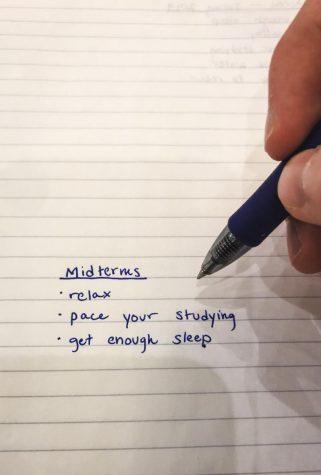 Midterms
· relax
· pace your studying
· get enough sleep